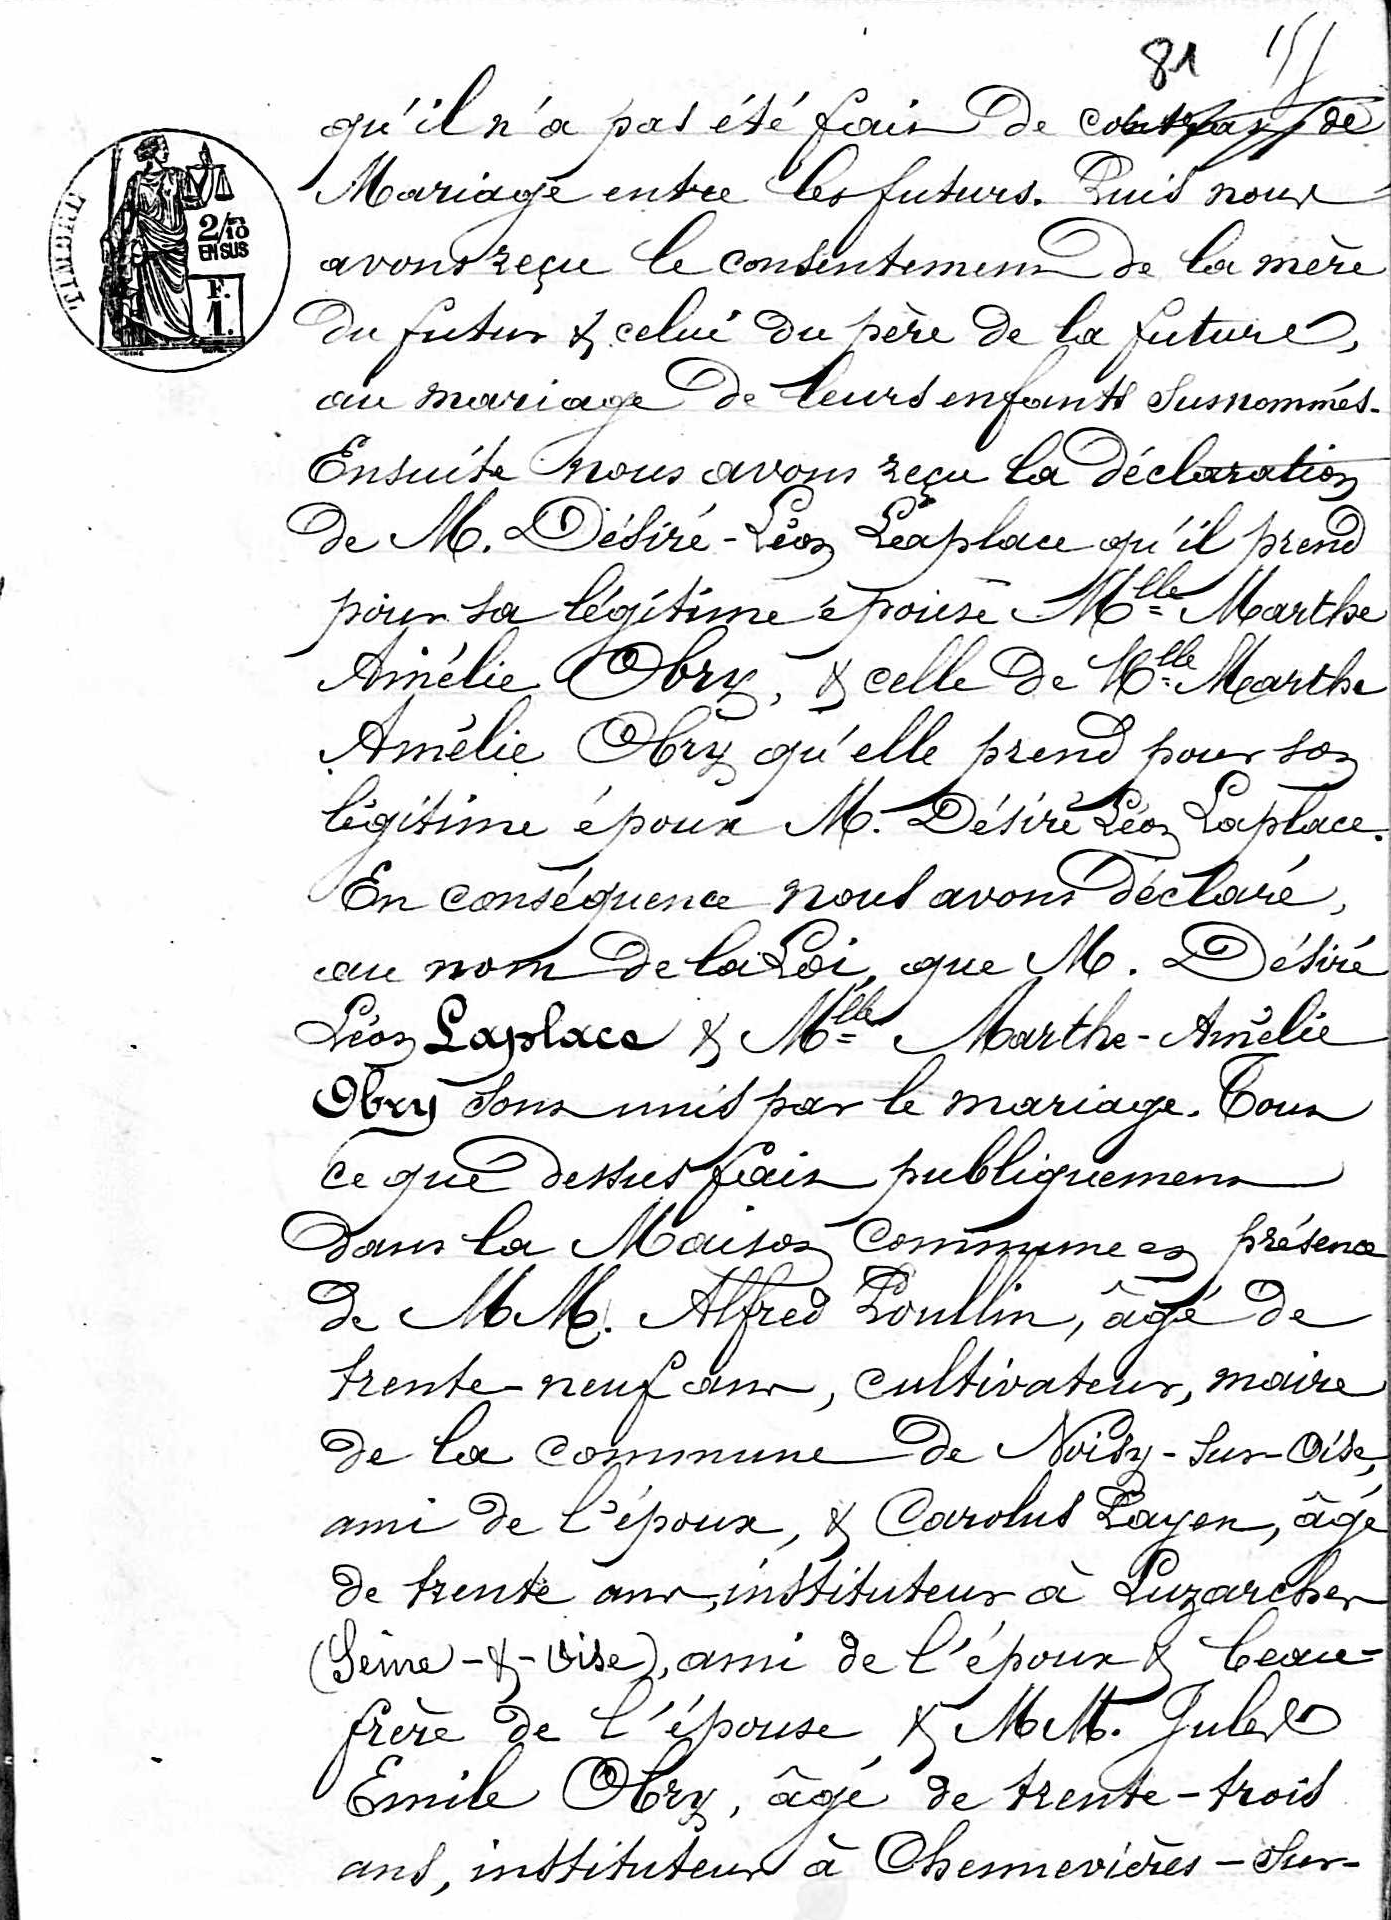 81
qu'il n'a pas été fait de contrat de
Mariage entre les futurs. Puis nous
avons reçu le consentement de la mère
du futur & celui du père de la future,
au mariage de leurs enfants susnommés.
Ensuite nous avons reçu la déclaration
de M. Désiré-Léon Laplace qu'il prend
pour sa légitime épouse Mlle Marthe
Amélie Obry, & celle de Mlle Marthe
Amélie Obry qu'elle prend pour son
légitime époux M. Désiré Léon Laplace.
En conséquence nous avons déclaré,
au nom de la Loi, que M. Désiré
Léon Laplace & Mlle Marthe-Amélie
Obry sont unis par le mariage. Tout
ce que dessus fait publiquement
dans la Maison commune en présence
de MM. Alfred Poullin, âgé de
trente-neuf ans, cultivateur, maire
de la commune de Noisy-sur-Oise,
ami de l'époux, & Carolus Payen, âgé
de trente ans, instituteur à Luzarches
(Seine-&-Oise), ami de l'époux & beau-
frère de l'épouse & MM. Jules
Emile Obry, âgé de trente-trois
ans, instituteur à Chennevières-sur-
TIMBRE
2/10
EN SUS
F.
1.